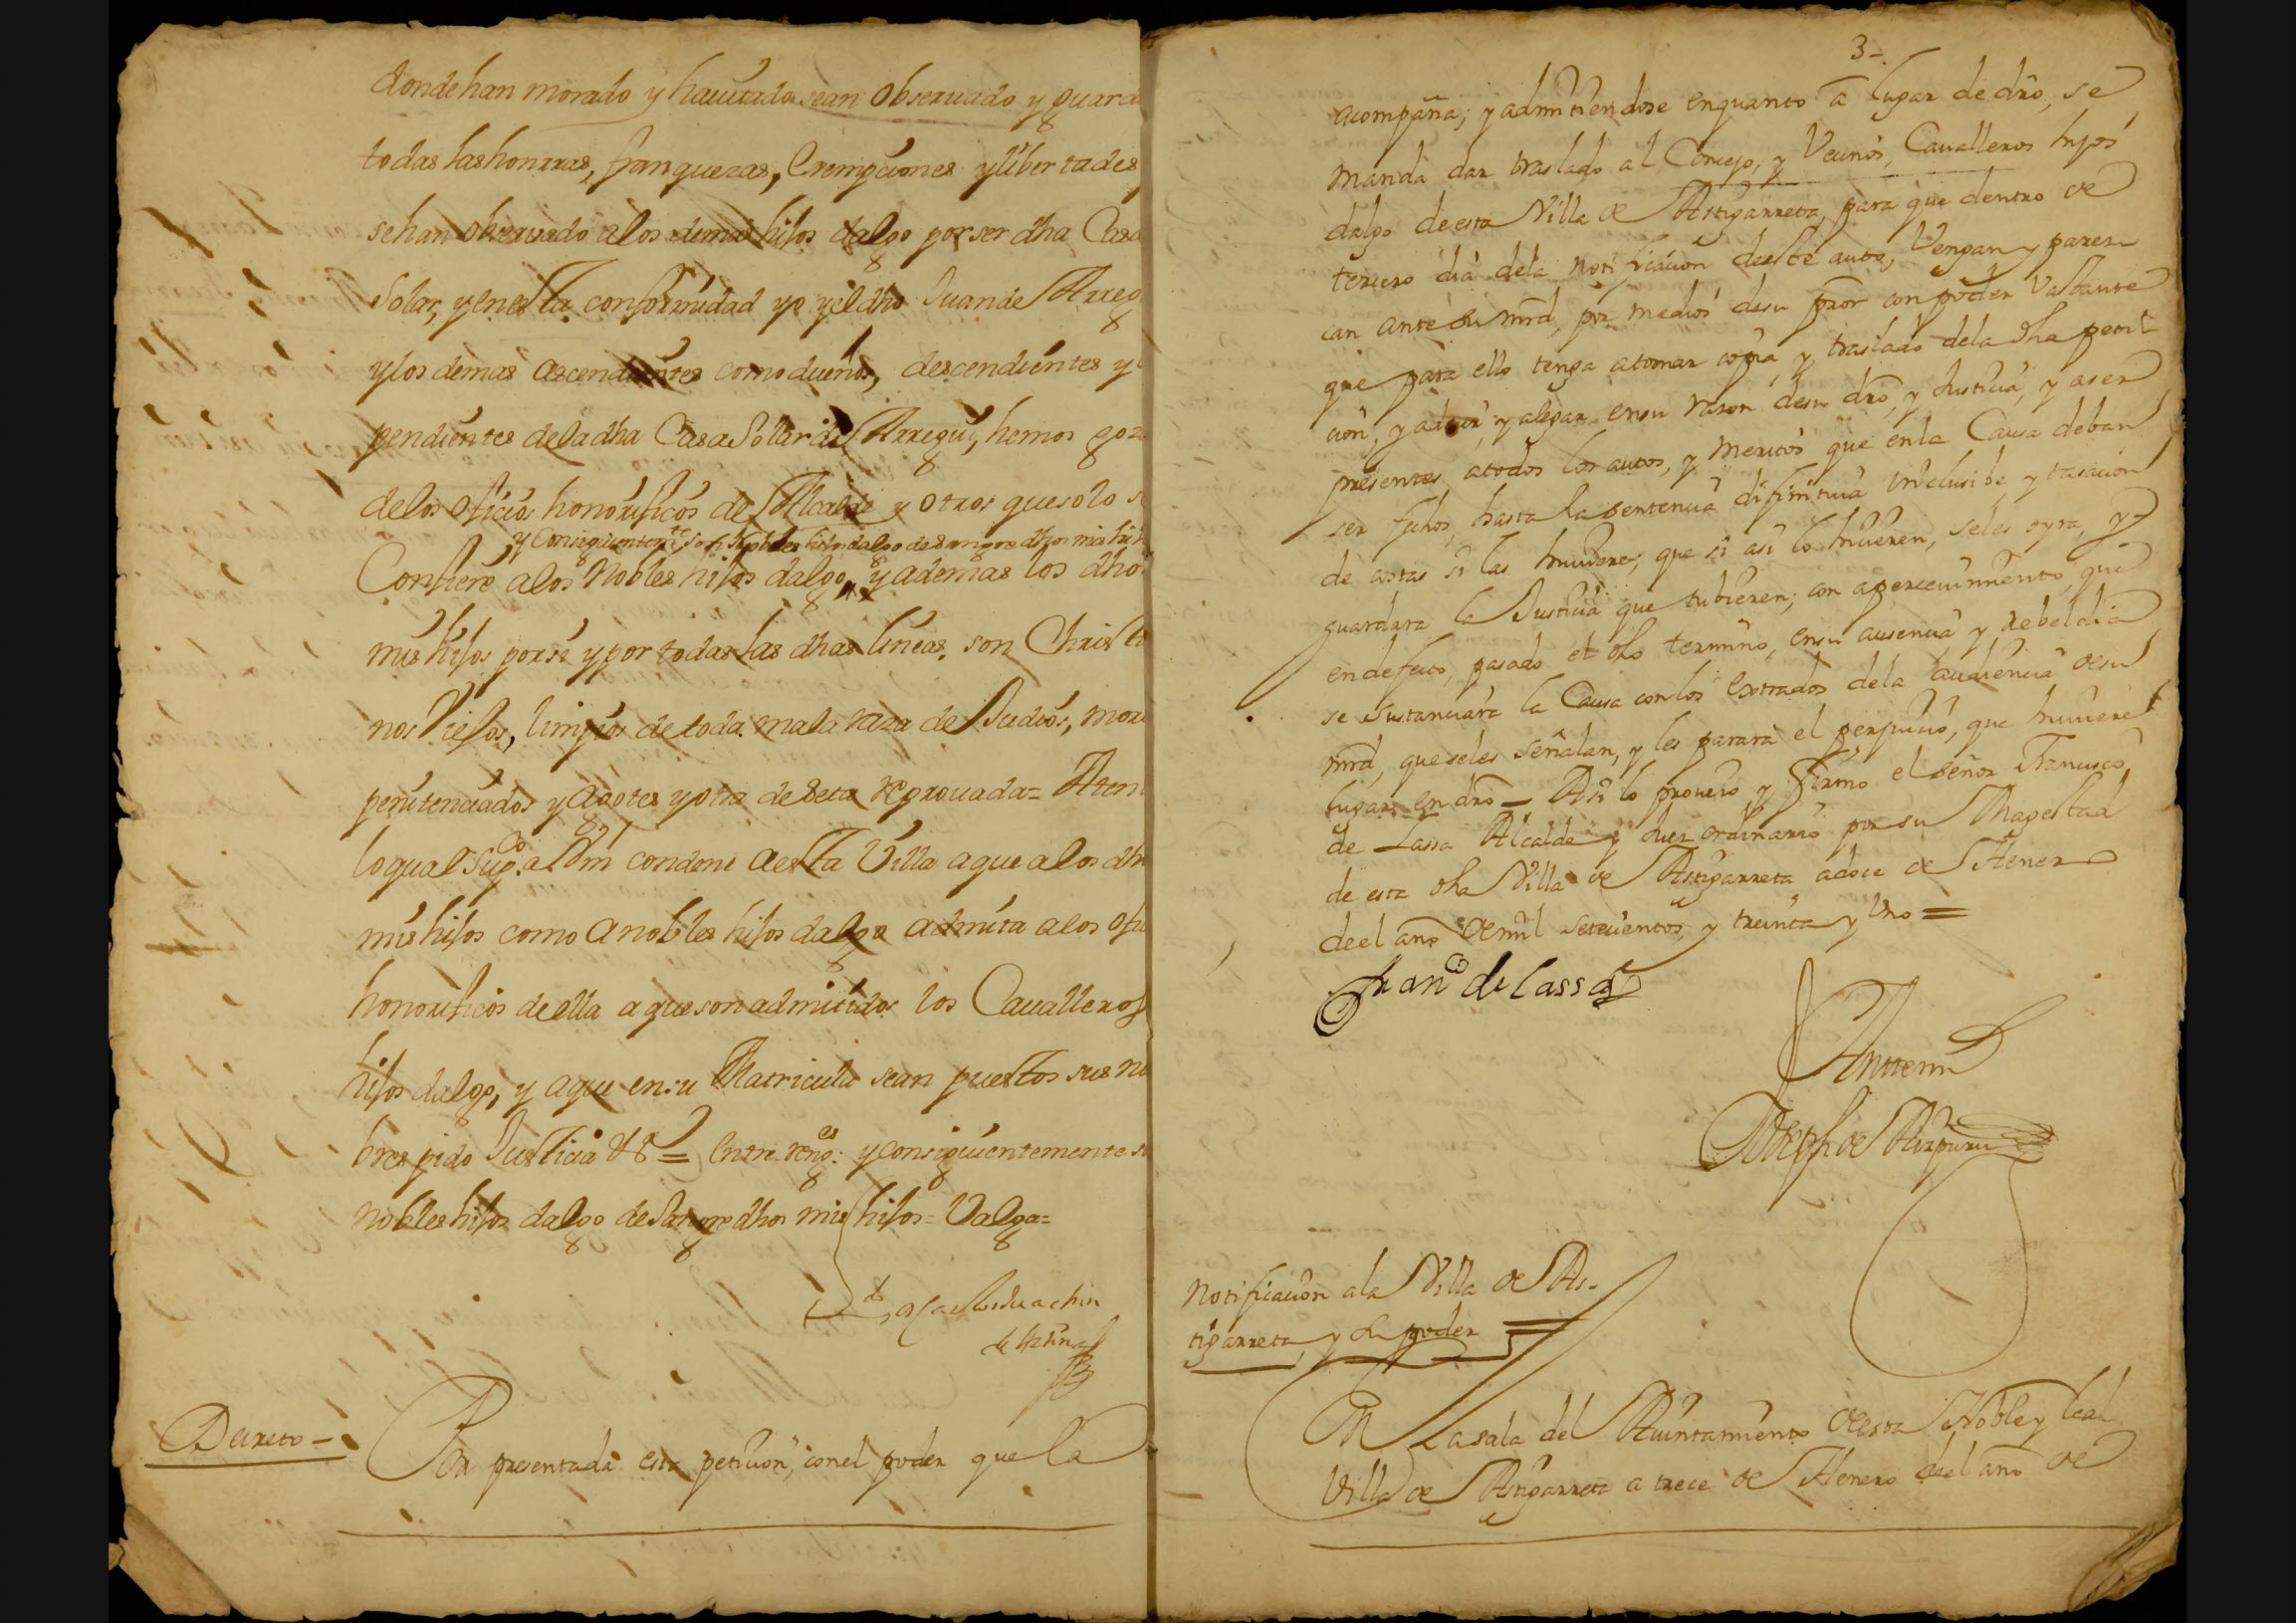 donde han morado y hauitado sean obseruado y guard
todas las honrras, franquezas, Crempciones y libertades
se han obseruado a los demas hijos dalgo por ser dha Casa
Solar, y en esta conformidad yo y el dho Juan de Arreg
y los demas ascendientes como dueños, descendientes y
pendientes de la dha Casa Solar de Arregui, hemos goz
de los oficios honorificos de Alcalde y otros que solo s
y Consiguientemte son Nobles hijos dalgo de Sangre dhos mis hij
Confiere a los Nobles hijos dalgo, y ademas los dho
mis hijos por si y por todas las dhas lineas, son Christi
nos Viejos, limpios de toda mala raza de Judios, mor
penitenciados y Agotes y otra de Seta reprouada= Aten
lo qual Supco a Vm condene a esta Villa a que a los dh
mis hijos como a nobles hijos dalgo admita a los ofi
honorificos de ella a que son admitidos los Caualleros
hijos dalgo, y a que en su Matricula sean puestos sus no
bres pido Justicia &ª = Entre renges: y consiguientemente s
nobles hijos dalgo de Sangre dhos mis hijos= Valga=
Decreto -
Por presentada esta peticion, con el poder que la
3-
acompaña; y admitiendose en quanto a lugar de dro, se
manda dar traslado al Concejo, y Vecinos, Caualleros hijos
dalgo de esta Villa de Astigarreta, para que dentro de
tercero dia dela notificacion deeste auto, Vengan y parez
can ante su mrd, por medio de su pror con poder Vastante
que para ello tenga a tomar copia, y traslado dela dha petit
cion, y a decir, y alegar en su razon de su dro, y Justicia, y a ser
presentes a todos los autos, y meritos que en la Causa deban
ser fechos, hasta la sentencia difinitiua inclusibe, y tasacion
de costas si las huuiere; que si asi lo hicieren, seles oyra, y
guardara la Justicia que tubieren; con aperceuimiento, que
en defecto, pasado el dho termino, en su ausencia y rebeldia
se sustanciara la Causa con los Estrados dela audiencia de su
mrd, que seles señalan, y les parara el perjuicio, que huuiere
lugar en dro = Asi lo proueio y firmo el señor Francisco
de Lassa Alcalde y Juez ordinario por su Magestad
de esta dha Villa de Astigarreta, a doce de Henero
deel año de mil setecientos y treinta y Uno =
Franco de Lassa
Ante mi
Joseph de Aizpuru
Notificacion a la Villa de As-
tigarreta, y su poder
En La sala del Aiuntamiento de esta Noble y leal
Villa de Astigarreta a trece de Henero deel año de